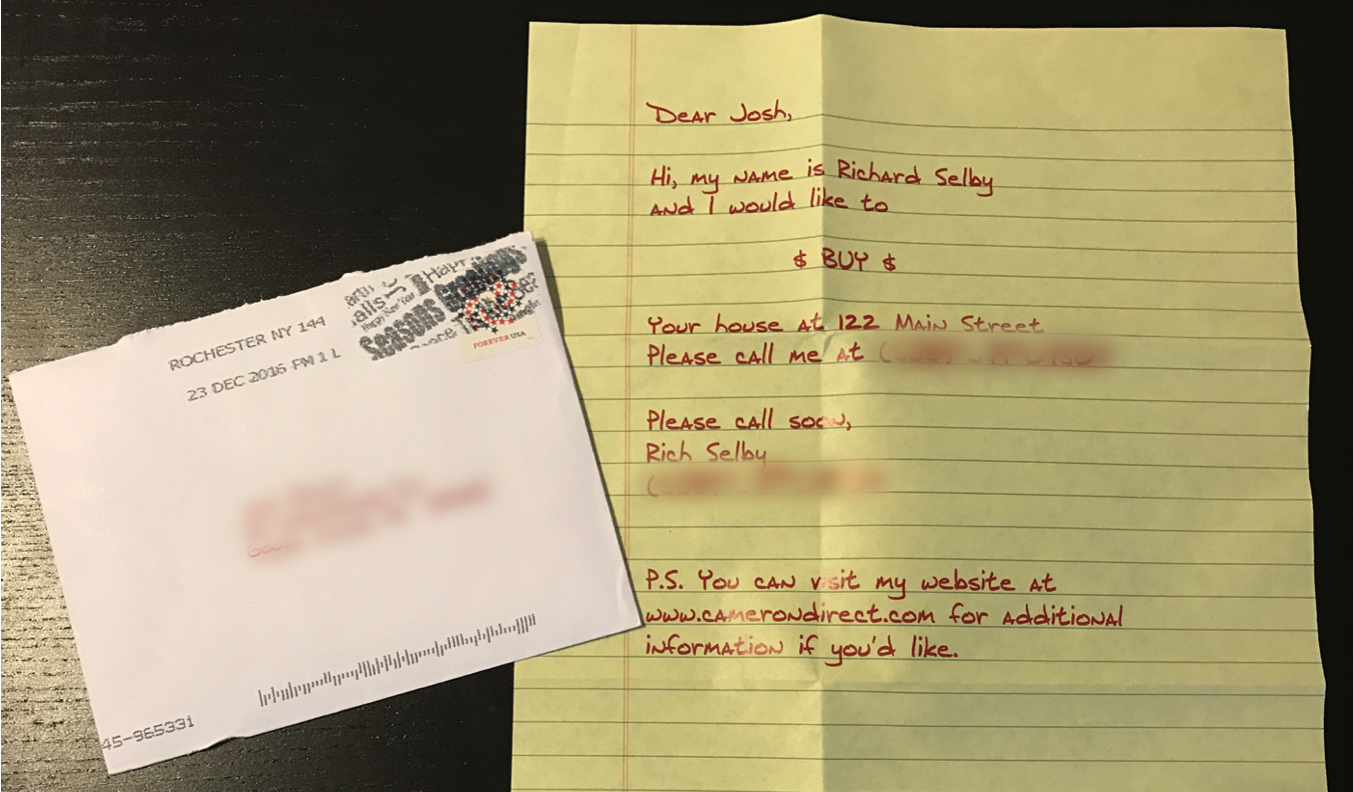 ROCHESTER NY 144
23 DEC 2016 PM 1 L
Happy New Year
Seasons Greetings
FOREVER USA
45-965331
Dear Josh,
Hi, my name is Richard Selby
and I would like to
$ BUY $
Your house at 122 Main Street
Please call me at
Please call soon,
Rich Selby
P.S. You can visit my website at
www.camerondirect.com for additional
information if you'd like.